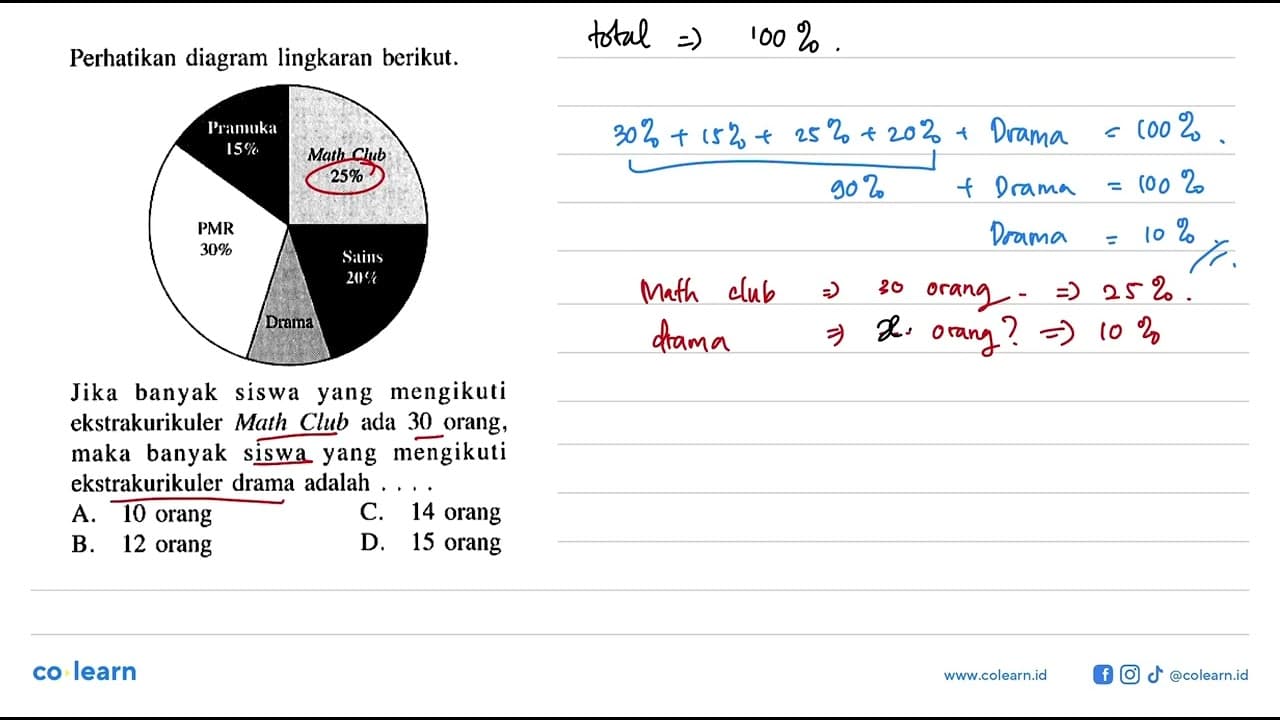 Perhatikan diagram lingkaran berikut.
Pramuka
15%
Math Club
25%
PMR
30%
Sains
20%
Drama
Jika banyak siswa yang mengikuti
ekstrakurikuler Math Club ada 30 orang,
maka banyak siswa yang mengikuti
ekstrakurikuler drama adalah . . . .
A. 10 orang
C. 14 orang
B. 12 orang
D. 15 orang
total => 100%.
30% + 15% + 25% + 20% + Drama = 100%.
90% + Drama = 100%
Drama = 10%
Math club => 30 orang. => 25%.
drama => x orang? => 10%
co learn
www.colearn.id
@colearn.id